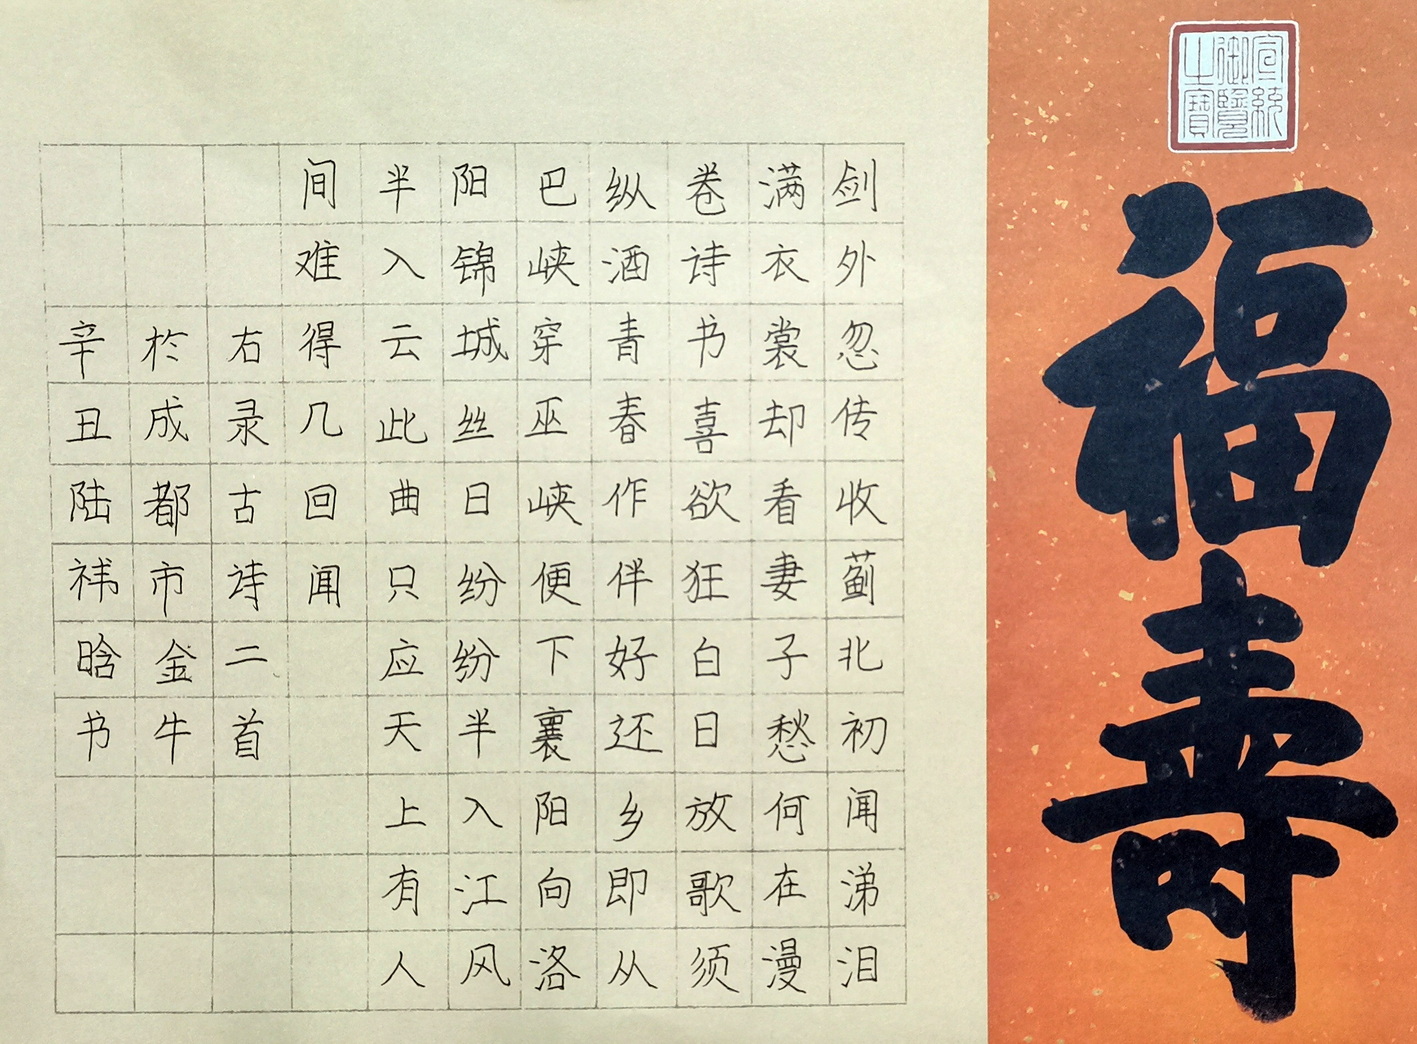 宣統御覽之寶
福壽
剑外忽传收蓟北初闻涕泪
满衣裳却看妻子愁何在漫
卷诗书喜欲狂白日放歌须
纵酒青春作伴好还乡即从
巴峡穿巫峡便下襄阳向洛
阳锦城丝日纷纷半入江风
半入云此曲只应天上有人
间难得几回闻
右录古诗二首
於成都市金牛
辛丑陆祎晗书